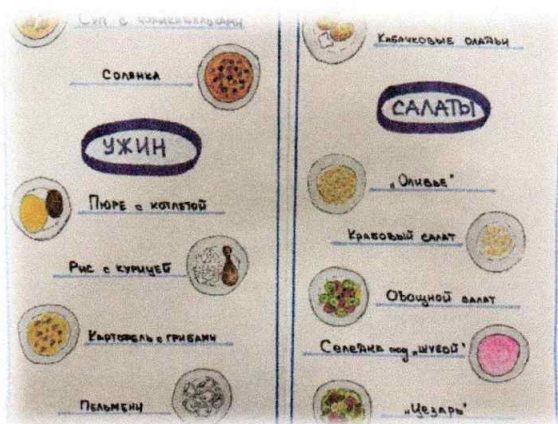 Суп с фрикадельками
Солянка
УЖИН
Пюре с котлетой
Рис с курицей
Картофель с грибами
Пельмени
Кабачковые оладьи
САЛАТЫ
„Оливье"
Крабовый салат
Овощной салат
Селёдка под „шубой"
„Цезарь"